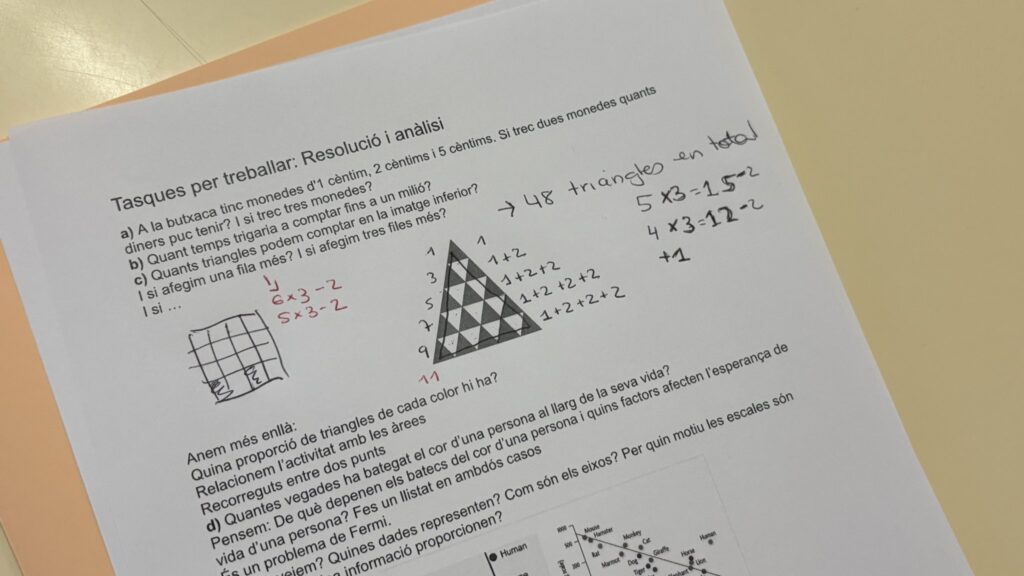 Tasques per treballar: Resolució i anàlisi
a) A la butxaca tinc monedes d'1 cèntim, 2 cèntims i 5 cèntims. Si trec dues monedes quants
diners puc tenir? I si trec tres monedes?
b) Quant temps trigaria a comptar fins a un milió?
c) Quants triangles podem comptar en la imatge inferior?
I si afegim una fila més? I si afegim tres files més?
I si ...
→ 48 triángles en total
5 x3=15-2
4 x3=12-2
+1
6x3-2
5x3-2
1
3
5
7
9
11
1
1+2
1+2+2
1+2+2+2
1+2+2+2
Anem més enllà:
Quina proporció de triangles de cada color hi ha?
Relacionem l'activitat amb les àrees
Recorreguts entre dos punts
d) Quantes vegades ha bategat el cor d'una persona al llarg de la seva vida?
Pensem: De què depenen els batecs del cor d'una persona i quins factors afecten l'esperança de
vida d'una persona? Fes un llistat en ambdós casos
És un problema de Fermi.
veiem? Quines dades representen? Com són els eixos? Per quin motiu les escales són
informació proporcionen?
Human
Mouse
Hamster
Rat
Monkey
Marmot
Cat
Dog
Giraffe
Tiger
Horse
Lion
Human